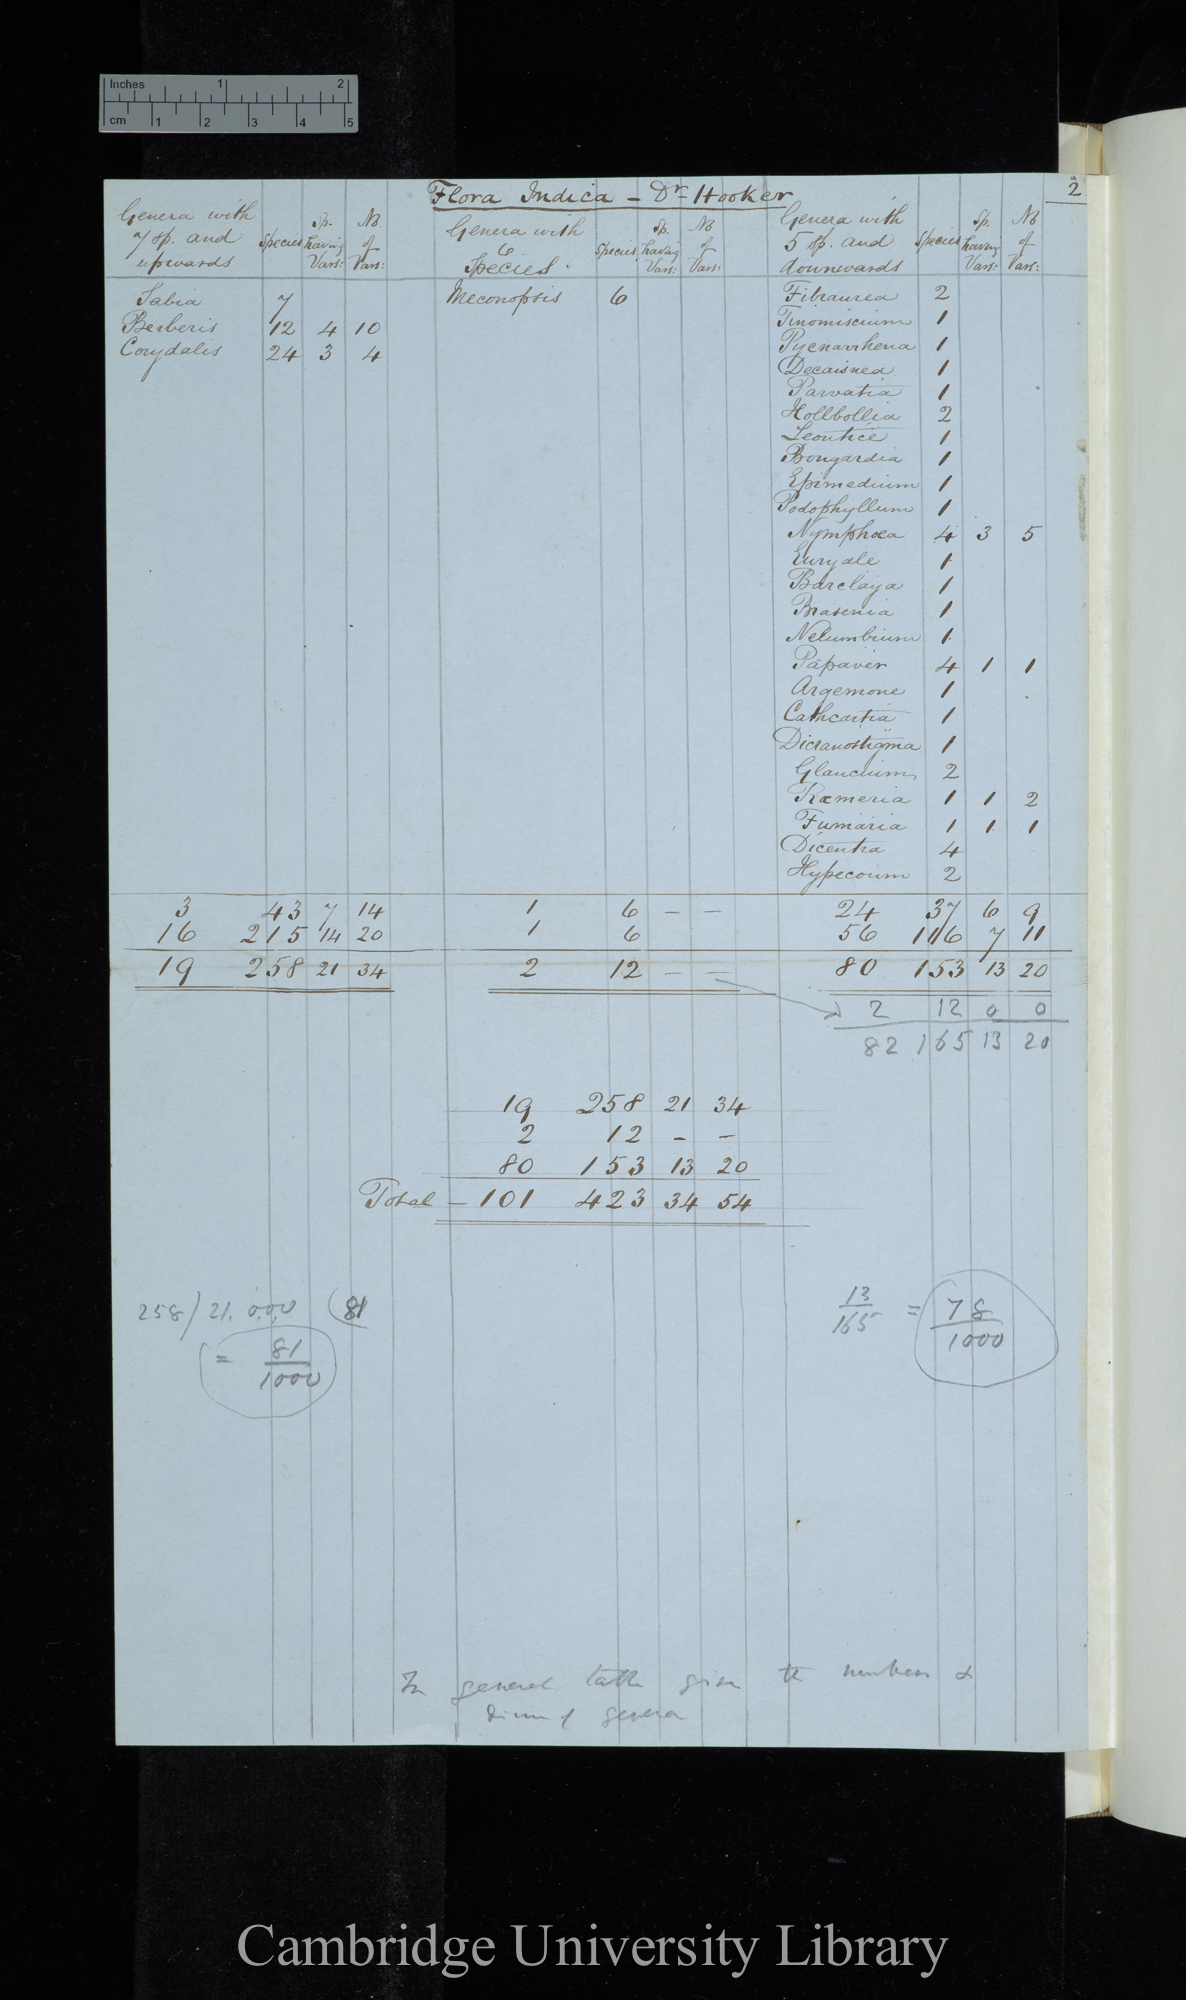 Inches 1 2
cm 1 2 3 4 5
2
Flora Indica - Dr Hooker
Genera with 7 sp. and upwards | Species | Sp. having Vars: | No of Vars: | Genera with 6 Species. | Species | Sp. having Vars: | No of Vars: | Genera with 5 sp. and downwards | Species | Sp. having Vars: | No of Vars:
Sabia 7 Meconopsis 6 Fibraurea 2
Berberis 12 4 10 Tinomiscium 1
Corydalis 24 3 4 Pycnarrhena 1
Decaisnea 1
Parvatia 1
Hollbollia 2
Leontice 1
Bongardia 1
Epimedium 1
Podophyllum 1
Nymphœa 4 3 5
Euryale 1
Barclaya 1
Brasenia 1
Nelumbium 1
Papaver 4 1 1
Argemone 1
Cathcartia 1
Dicranostigma 1
Glaucium 2
Rœmeria 1 1 2
Fumaria 1 1 1
Dicentra 4
Hypecoum 2
3 43 7 14 1 6 – – 24 37 6 9
16 215 14 20 1 6 56 116 7 11
19 258 21 34 2 12 – – 80 153 13 20
2 12 0 0
82 165 13 20
19 258 21 34
2 12 – –
80 153 13 20
Total – 101 423 34 54
258/21.000 (81
= 81/1000
13/165 = 78/1000
In general table give the numbers &
genera
Cambridge University Library